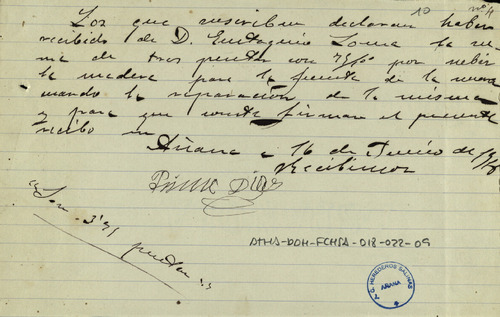 10 nº 11
Los que suscriben declaran haber
recibido de D. Eustaquio Loma la su
ma de tres pesetas con por subir
la madera para la fuente de la
mando la reparación de la misma
y para que conste firman el presente
recibo en
Añana a 16 de Junio de
Recibimos
"Son 3'75 pesetas"
ATHA-DAH-FCHSA-018-022-09
A.C. HEREDEROS SALINAS
AÑANA